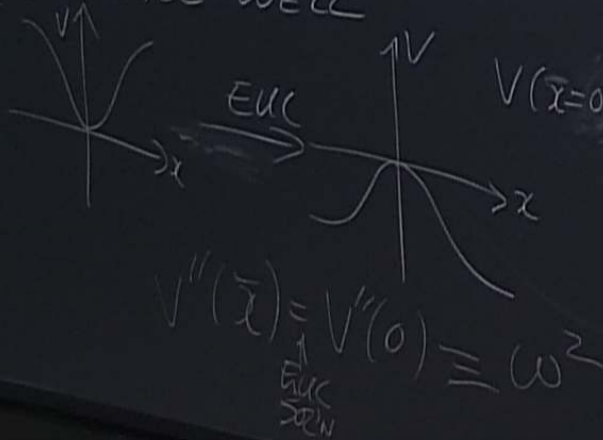 WELL
V
x
EUC
V
x
V(x̄=0
V''(x̄) = V''(0) ≡ ω²
↑
EUC
SOL'N